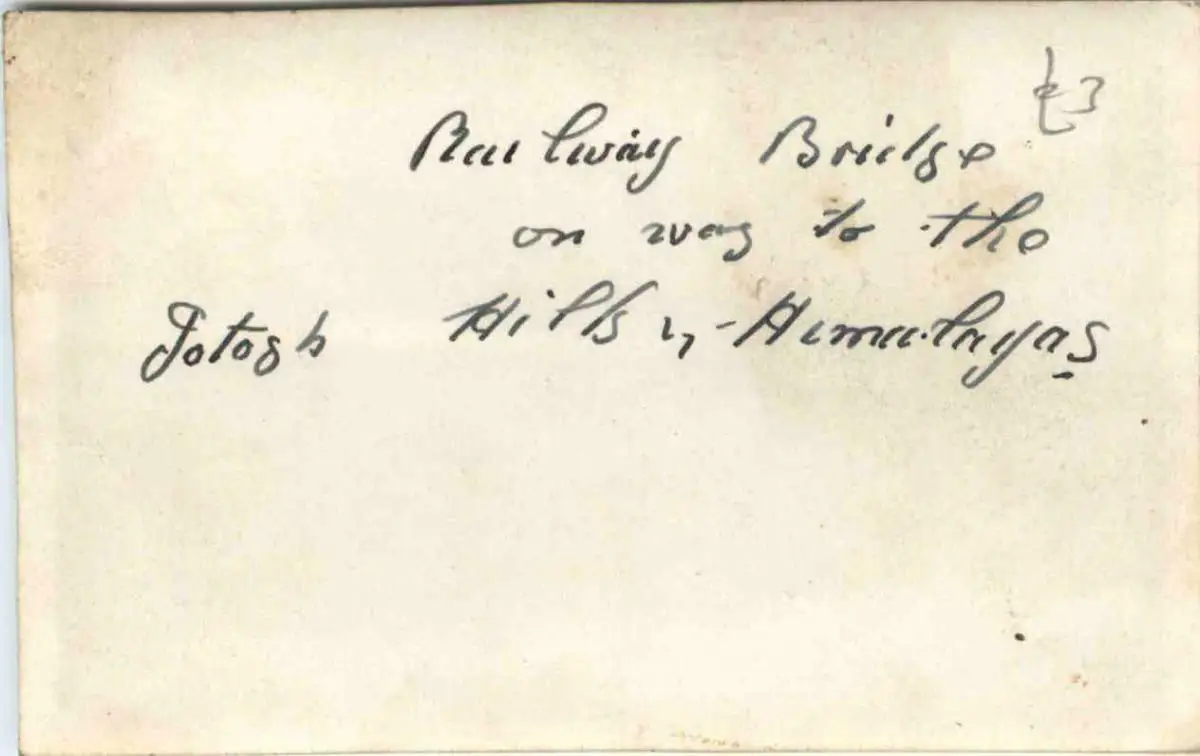 £3
Railway Bridge
on way to the
Jotogh Hills, Himalayas